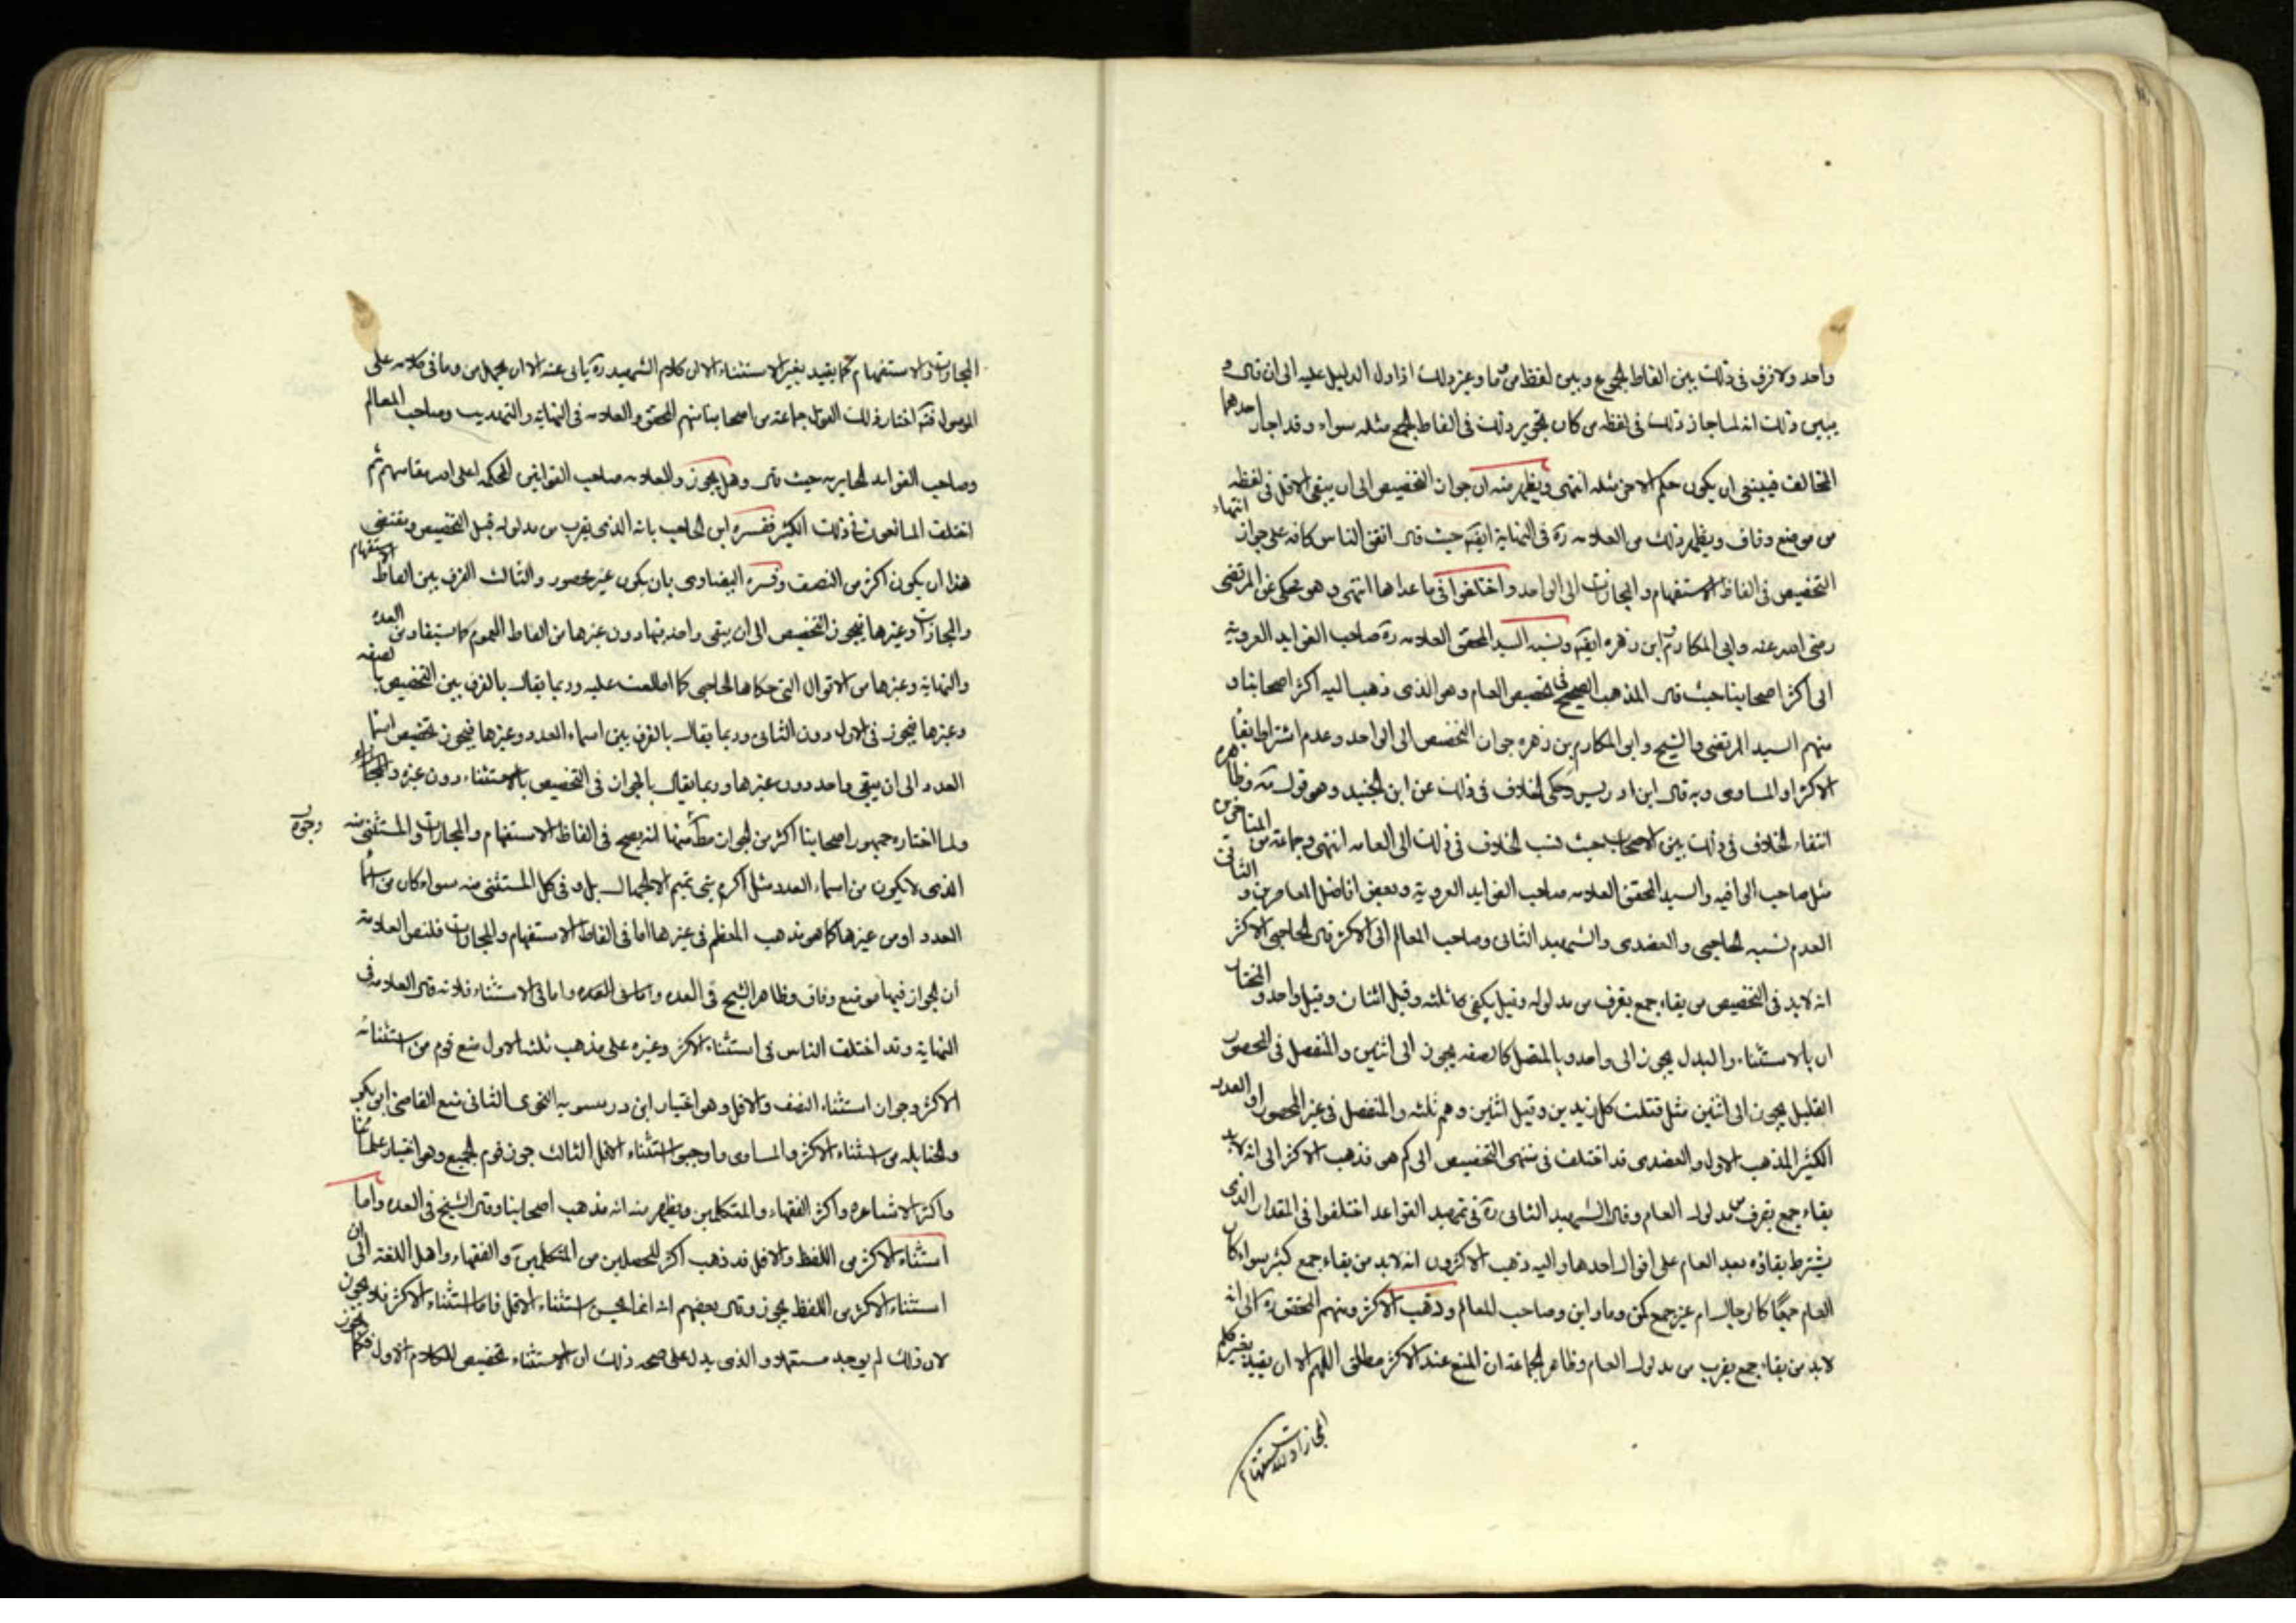 واحد ولا فرق في ذلك بين الفاظ الجموع وبين لفظ من وما وغير ذلك اذا دل الدليل عليه الى ان قال و
يبين ذلك انه لما جاز ذلك في لفظه من كان تجويز ذلك في الفاظ الجمع مثله سواء وقد اجاز احدهما
المخالف فينبغي ان يكون حكم الاخر مثله انتهى ويظهر منه ان جواز التخصيص الى ان يبقى الاقل في لفظه انتهاء
من موضع وفاق ويظهر ذلك من العلامه ره في النهاية ايضه حيث قال اتفق الناس كافه على جواز
التخصيص في الفاظ الاستفهام والمجازات الى الواحد واختلفوا في ما عداها انتهى وهو محكي عن المرتضى
رضي الله عنه وابي المكارم ابن زهره ايضه ونسبه السيد المحقق العلامه ره صاحب الفوايد
الى اكثر اصحابنا حيث قال المذهب الصحيح في تخصيص العام وهو الذي ذهب اليه اكثر اصحابنا و
منهم السيد المرتضى والشيخ وابو المكارم بن زهره جواز التخصيص الى الواحد وعدم اشتراط بقاء
الاكثر او المساوي وبه قال ابن ادريس وحكى الخلاف في ذلك عن ابن الجنيد وهو قول مه وظاهره
انتفاء الخلاف في ذلك بين الاصحاب حيث نسب الخلاف في ذلك الى العامه انتهى وجماعه من المتاخرين
مثل صاحب الوافيه والسيد المحقق العلامه صاحب الفوايد وبعض افاضل المعاصرين و الثاني
العدم نسبه الحاجبي والعضدي والشهيد الثاني وصاحب المعالم الى الاكثر قال الحاجبي الاكثر
انه لا بد في التخصيص من بقاء جمع يقرب من مدلوله وقيل يكفي ثلثه وقيل اثنان وقيل واحد والمختار
ان بالاستثناء والبدل يجوز الى واحد وبالمتصل كالصفه يجوز الى اثنين والمنفصل في المحصور
القليل يجوز الى اثنين مثل قتلت كل زنديق وقيل اثنين وهم ثلثه والمنفصل في غير المحصور او العدد
الكثير المذهب الاول والعضدي قد اختلف في منتهى التخصيص الى كم هو فذهب الاكثر الى انه لا بد
بقاء جمع يقرب من مدلول العام وقال الشهيد الثاني ره في تمهيد القواعد اختلفوا في المقدار الذي
يشترط بقاؤه بعد العام على اقوال احدها واليه ذهب الاكثرون انه لا بد من بقاء جمع كثير سواء كان
العام جمعًا كالرجال ام غير جمع كمن وما واين وصاحب المعالم وذهب الاكثر ومنهم المحقق ره الى انه
لا بد من بقاء جمع يقرب من مدلول العام وظاهر الجماعة ان المنع عند الاكثر مطلق اللهم الا ان يقيد بغير
المجازات والاستفهام
المجازات والاستفهام كما يقيد بغير الاستثناء الا ان كلام الشهيد ره يابى عنه الا ان يحمل من وما في كلامه على
الموصولة اختار ذلك القول جماعه من اصحابنا منهم المحقق والعلامه في النهاية والتهذيب وصاحب المعالم
وصاحب الفوايد الحايريه حيث قال وهل يجوز والعلامه صاحب القوانين المحكمه اعلى الله مقامهم ثم
اختلف المانعون في ذلك الكثير ففسره ابن الحاجب بانه الذي يقرب من مدلوله قبل التخصيص ومقتضى
هذا ان يكون اكثر من النصف وفسره البيضاوي بان يكون غير محصور والثالث الفرق بين الفاظ الاستفهام
والمجازات وغيرها فيجوز التخصيص الى ان يبقى واحد فيها دون غيرها من الفاظ العموم كما يستفاد من العده
والنهاية وغيرها من الاقوال التي حكاها الحاجبي كما اطلعت عليه وربما يقال بالفرق بين التخصيص بالصفه
وغيرها فيجوز في الاول دون الثاني وربما يقال بالفرق بين اسماء العدد وغيرها فيجوز تخصيص اسماء
العدد الى ان يبقى واحد دون غيرها وربما يقال بالجواز في التخصيص بالاستثناء دون غيره
ولما اختاره جمهور اصحابنا اكثر من الجواز مطلقا انه يصح في الفاظ الاستفهام والمجازات والمستثنى منه
وجوه
الذي لا يكون من اسماء العدد مثل اكرم بني تميم الا الجهال بل وفي كل المستثنى منه سواء كان من اسماء
العدد او من غيرها كما هو مذهب المعظم في غيرها اما في الفاظ الاستفهام والمجازات فلنص العلامة
ان الجواز فيها موضع وفاق وظاهر الشيخ في العده واما في الاستثناء فلانه قال العلامه في
النهاية وقد اختلف الناس في استثناء الاكثر وغيره على مذهب ثلثه الاول منع قوم من استثنائه
الاكثر وجواز استثناء النصف والاقل وهو اختيار ابن درستويه النحوي الثاني منع القاضي ابي بكر
والحنابله من استثناء الاكثر والمساوي واوجبوا استثناء الاقل الثالث جوز قوم الجميع وهو اختيار علمائنا
واكثر الاشاعره واكثر الفقهاء والمتكلمين ويظهر منه انه مذهب اصحابنا وقال الشيخ في العده واما
استثناء الاكثر من اللفظ والاقل قد ذهب اكثر المحصلين من المتكلمين والفقهاء واهل اللغه الى ان
استثناء الاكثر من اللفظ يجوز وقال بعضهم انه انما يحسن استثناء الاقل فاما استثناء الاكثر فلا يجوز
لان ذلك لم يوجد مستعملا والذي يدل على صحه ذلك ان الاستثناء تخصيص للكلام الاول فكما